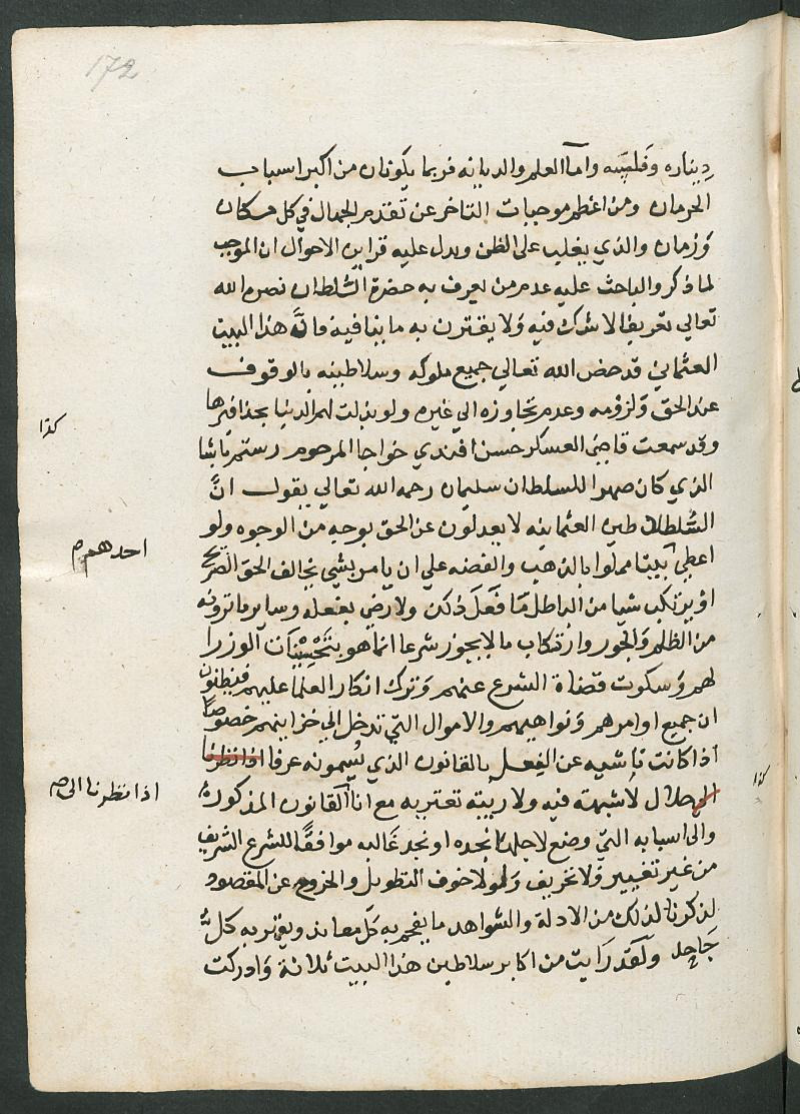 172
ديناره وفلسه واما العلم والديانه فربما يكونان من اكبر اسباب
الحرمان ومن اعظم موجبات التاخر عن تقدم الجهال في كل مكان
وزمان والذي يغلب على الظن ويدل عليه قراين الاحوال ان الموجب
لما ذكر والباحث عليه عدم من يعرف به حضرة السُّلطان نصره الله
تعالي تعريفا لا شك فيه ولا يقترن به ما ينافيه فانَّ هذا البيت
العثماني قد حض الله تعالى جميع ملوكه وسلاطينه بالوقوف
عند الحق ولزومه وعدم تجاوزه الي غيره ولو بذلت لهم الدنيا بحذافيرها
كذا
وقد سمعت قاضي العسكر حسن افندي خواجا المرحوم رستم باشا
الذي كان صهرا للسلطان سليمان رحمه الله تعالي يقول انَّ
السُّلطان طين العثمانيه لا يعدلون عن الحق بوجه من الوجوه ولو
احدهم م
اعطي بيتا مملوا بالذهب والفضه علي ان يامر بشي يخالف الحق الصريح
او يرتكب شيا من الباطل ما فَعَلَ ذلك ولا رضي بفعله وسائر ما ترونه
من الظلم والجور وارتكاب ما لا يجوز شرعا انما هو بتَحْسِيْنَات الوزرا
لهم وسكوت قضاة الشرع عنهم وترك انكار العلما عليهم فيظنون
ان جميع اوامرهم ونواهيهم والاموال التي تدخل الي خزاينهم خصوصًا
اذا كانت ناشيه عن الفعل بالقانون الذي يُسمونه عرفا اذا نظرنا
كذا
حلال لا شبهة فيه ولا ريبته تعتريه مع انا القانون المذكور
اذا نظرنا الى صه
والى اسبابه التي وضع لاجلها نجده او نجد غالبه موافقًا للشرع الشريف
من غير تغيير ولا تحريف ولولا خوف التطويل والخروج عن المقصود
لذكرنا لذلك من الادلة والشواهد ما يفحم به كل معاند ويقر به كلُّ
جَاحِد ولقد رايت من اكابر سلاطين هذا البيت ثلاثة وادركت